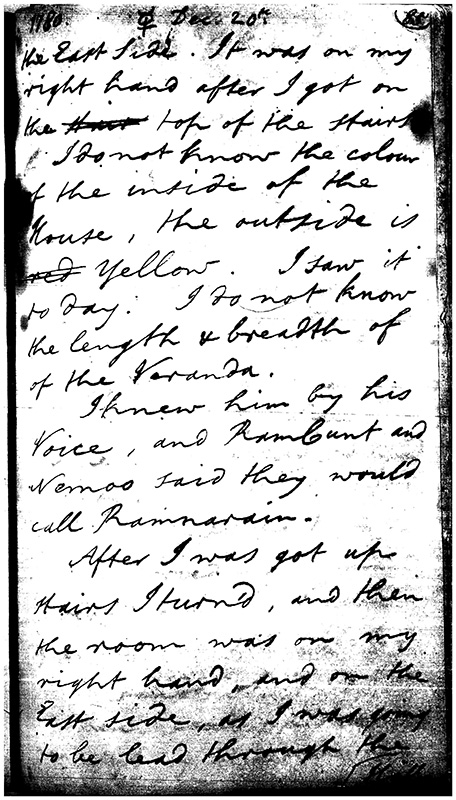 1780 Dec. 20th
the East Side. It was on my
right hand after I got on
the Stair top of the stairs
I do not know the colour
of the inside of the
House, the outside is
red Yellow. I saw it
to day. I do not know
the length & breadth of
of the Veranda.
I knew him by his
Voice, and RamCunt and
Nemoo said they would
call Ramnarain.
After I was got up
stairs I turn'd, and then
the room was on my
right hand, and on the
East side, as I was going
to be lead through the